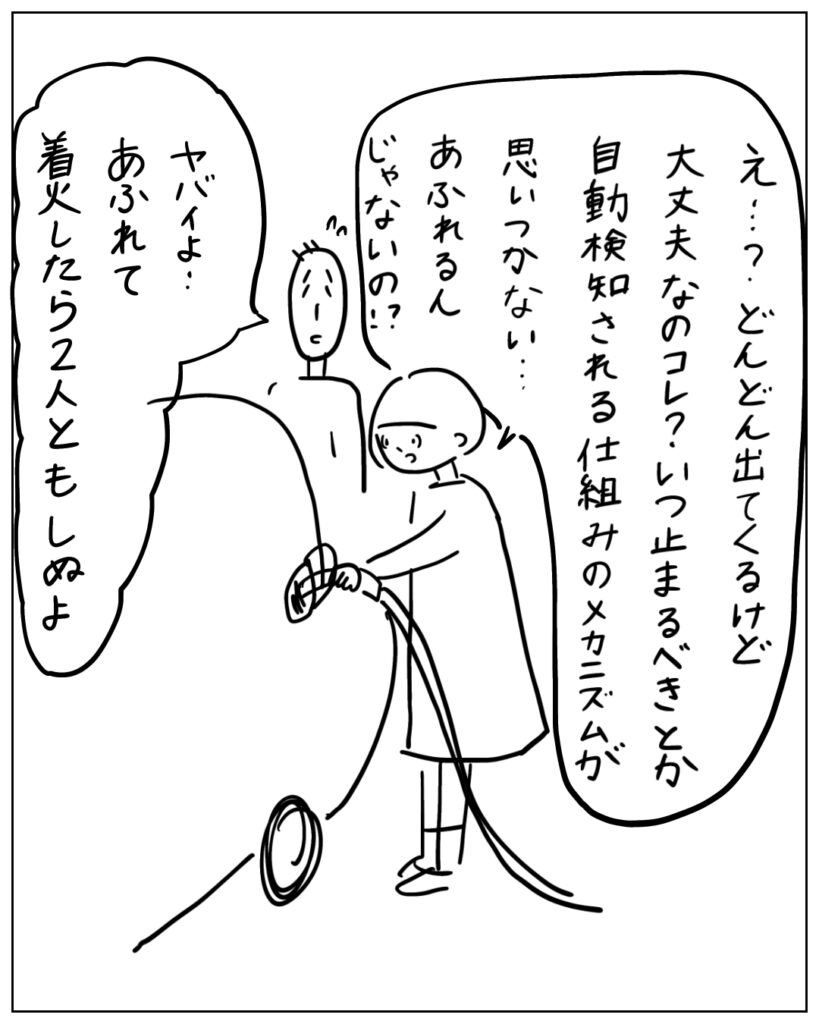 え…?どんどん出てくるけど
大丈夫なのコレ?いつ止まるべきとか
自動検知される仕組みのメカニズムが
思いつかない…
あふれるん
じゃないの!?
ヤバイよ…
あふれて
着火したら2人ともしぬよ